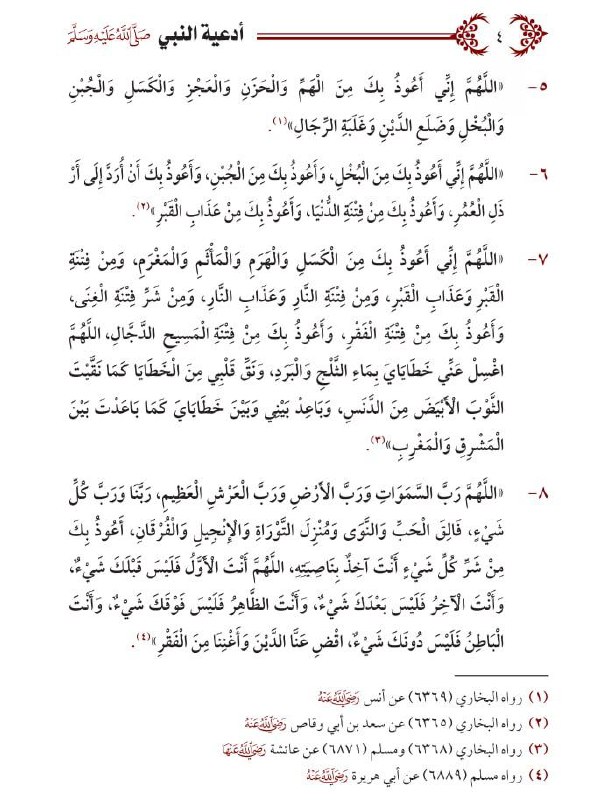 ٤ أدعية النبي صَلَّى اللَّهُ عَلَيْهِ وَسَلَّمَ
٥- «اللَّهُمَّ إِنِّي أَعُوذُ بِكَ مِنَ الْهَمِّ وَالْحَزَنِ وَالْعَجْزِ وَالْكَسَلِ وَالْجُبْنِ
وَالْبُخْلِ وَضَلَعِ الدَّيْنِ وَغَلَبَةِ الرِّجَالِ»(١).
٦- «اللَّهُمَّ إِنِّي أَعُوذُ بِكَ مِنَ الْبُخْلِ، وَأَعُوذُ بِكَ مِنَ الْجُبْنِ، وَأَعُوذُ بِكَ أَنْ أُرَدَّ إِلَى أَرْ
ذَلِ الْعُمُرِ، وَأَعُوذُ بِكَ مِنْ فِتْنَةِ الدُّنْيَا، وَأَعُوذُ بِكَ مِنْ عَذَابِ الْقَبْرِ»(٢).
٧- «اللَّهُمَّ إِنِّي أَعُوذُ بِكَ مِنَ الْكَسَلِ وَالْهَرَمِ وَالْمَأْثَمِ وَالْمَغْرَمِ، وَمِنْ فِتْنَةِ
الْقَبْرِ وَعَذَابِ الْقَبْرِ، وَمِنْ فِتْنَةِ النَّارِ وَعَذَابِ النَّارِ، وَمِنْ شَرِّ فِتْنَةِ الْغِنَى،
وَأَعُوذُ بِكَ مِنْ فِتْنَةِ الْفَقْرِ، وَأَعُوذُ بِكَ مِنْ فِتْنَةِ الْمَسِيحِ الدَّجَّالِ، اللَّهُمَّ
اغْسِلْ عَنِّي خَطَايَايَ بِمَاءِ الثَّلْجِ وَالْبَرَدِ، وَنَقِّ قَلْبِي مِنَ الْخَطَايَا كَمَا نَقَّيْتَ
الثَّوْبَ الْأَبْيَضَ مِنَ الدَّنَسِ، وَبَاعِدْ بَيْنِي وَبَيْنَ خَطَايَايَ كَمَا بَاعَدْتَ بَيْنَ
الْمَشْرِقِ وَالْمَغْرِبِ»(٣).
٨- «اللَّهُمَّ رَبَّ السَّمَوَاتِ وَرَبَّ الْأَرْضِ وَرَبَّ الْعَرْشِ الْعَظِيمِ، رَبَّنَا وَرَبَّ كُلِّ
شَيْءٍ، فَالِقَ الْحَبِّ وَالنَّوَى وَمُنْزِلَ التَّوْرَاةِ وَالْإِنْجِيلِ وَالْفُرْقَانِ، أَعُوذُ بِكَ
مِنْ شَرِّ كُلِّ شَيْءٍ أَنْتَ آخِذٌ بِنَاصِيَتِهِ، اللَّهُمَّ أَنْتَ الْأَوَّلُ فَلَيْسَ قَبْلَكَ شَيْءٌ،
وَأَنْتَ الْآخِرُ فَلَيْسَ بَعْدَكَ شَيْءٌ، وَأَنْتَ الظَّاهِرُ فَلَيْسَ فَوْقَكَ شَيْءٌ، وَأَنْتَ
الْبَاطِنُ فَلَيْسَ دُونَكَ شَيْءٌ، اقْضِ عَنَّا الدَّيْنَ وَأَغْنِنَا مِنَ الْفَقْرِ»(٤).
(١) رواه البخاري (٦٣٦٩) عن أنس رَضِيَ اللَّهُ عَنْهُ
(٢) رواه البخاري (٦٣٦٥) عن سعد بن أبي وقاص رَضِيَ اللَّهُ عَنْهُ
(٣) رواه البخاري (٦٣٦٨) ومسلم (٦٨٧١) عن عائشة رَضِيَ اللَّهُ عَنْهَا
(٤) رواه مسلم (٦٨٨٩) عن أبي هريرة رَضِيَ اللَّهُ عَنْهُ